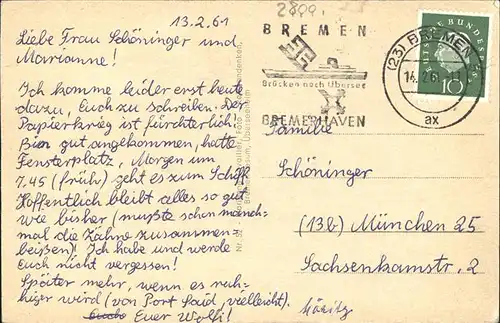 13.2.61
Liebe Frau Schöninger und
Marianne!
Ich komme leider erst heute
dazu, Euch zu schreiben. Der
Papierkrieg ist fürchterlich!
Bin gut angekommen, hatte
Fensterplatz, Morgen um
7.45 (früh) geht es zum Schiff
Hoffentlich bleibt alles so gut
wie bisher (mußte schon manch-
mal die Zähne zusammen-
beißen) Ich habe und werde
Euch nicht vergessen!
Später mehr, wenn es ruh-
higer wird (von Port Said, vielleicht).
Euer Wolfi!
BREMEN
Brücken nach Übersee
BREMERHAVEN
(23) BREMEN
14.2.61
ax
DEUTSCHE BUNDESPOST
10
Familie
Schöninger
(13b) München 25
Sachsenkamstr. 2